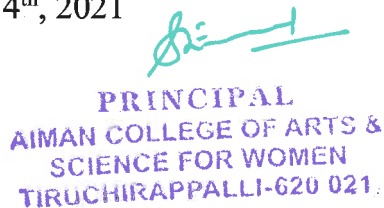 4th, 2021
PRINCIPAL
AIMAN COLLEGE OF ARTS &
SCIENCE FOR WOMEN
TIRUCHIRAPPALLI-620 021.